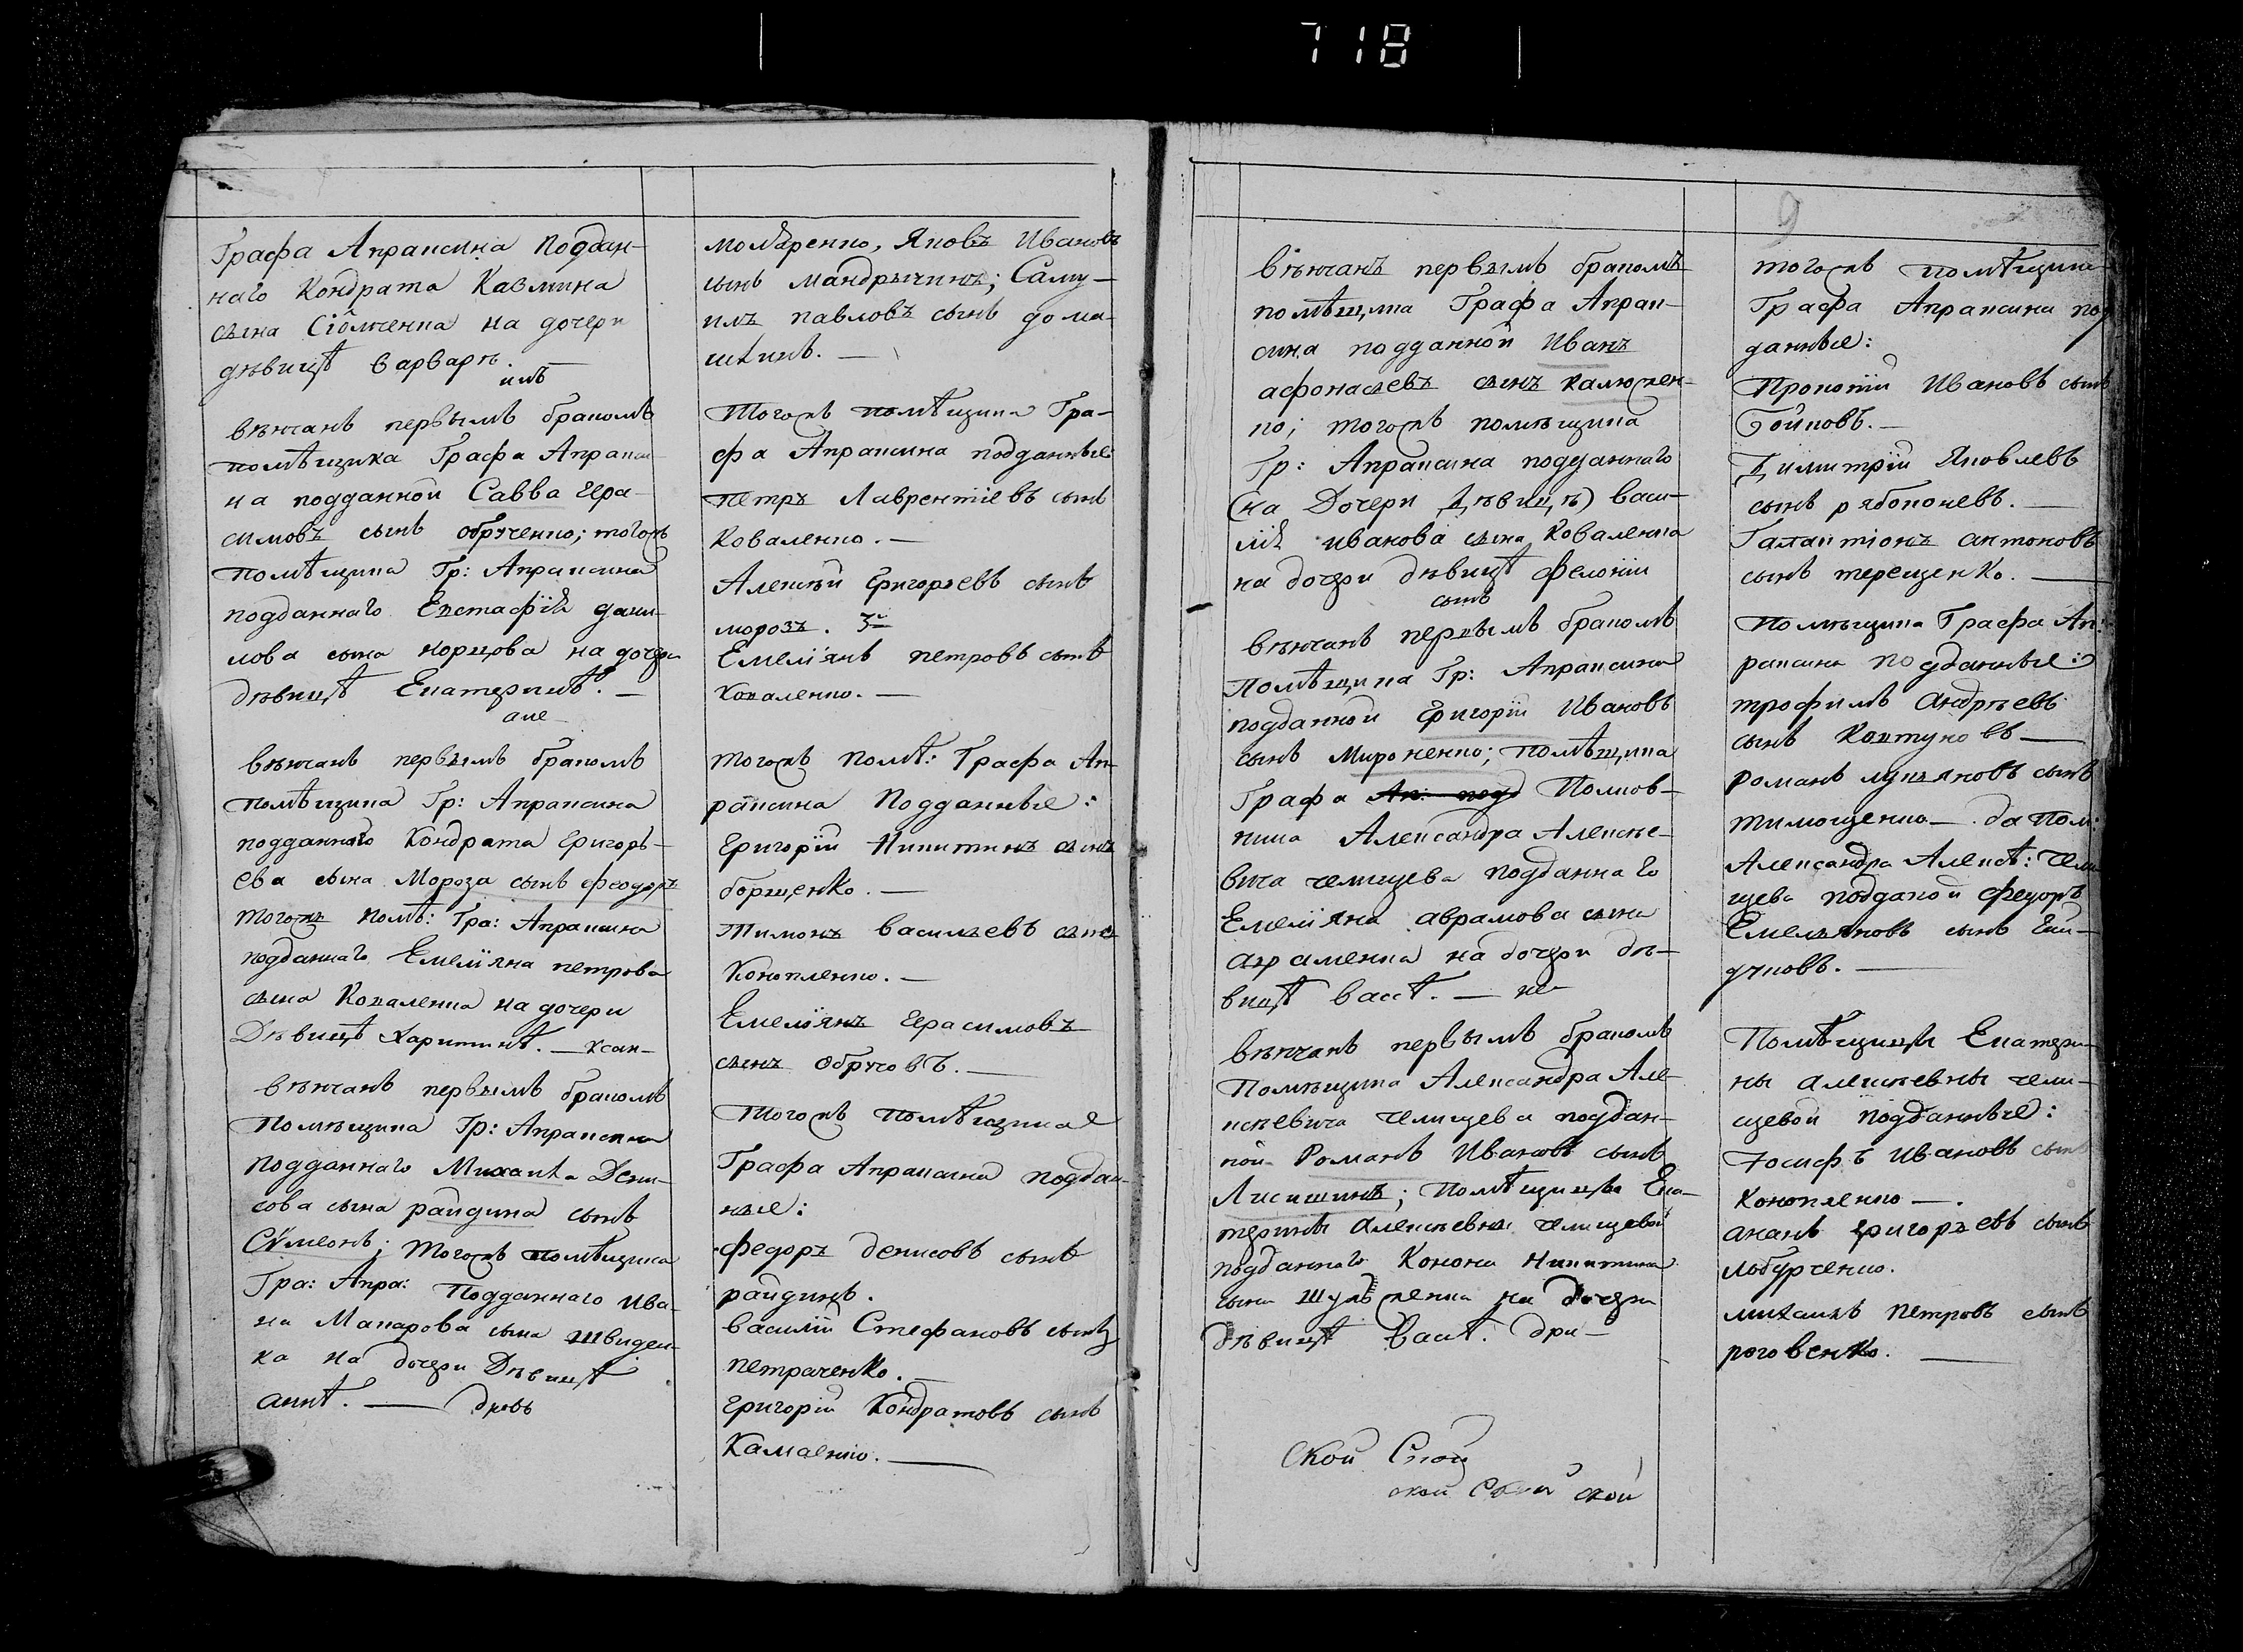 718
Графа Апраксина Поддан-
наго Кондрата Казмина
сына на дочери
дѣвицѣ варварѣ.
вѣнчанъ первымъ бракомъ
помѣщика Графа Апракси-
на подданной Савва Гера-
симовъ сынъ обрученко; тогожъ
помѣщика Гр: Апраксина
подданнаго Евстафія дани-
лова сына на дочери
дѣвицѣ Екатеринѣ. —
вѣнчанъ первымъ бракомъ
помѣщика Гр: Апраксина
подданнаго Кондрата григорь-
ева сына Мороза сынъ феодоръ
тогожъ помѣ: Гра: Апраксина
подданнаго Емеліяна петрова
сына Коваленка на дочери
Дѣвицѣ Харитинѣ. —
вѣнчанъ первымъ бракомъ
помѣщика Гр: Апраксина
подданнаго Михаила Дени-
сова сына райдина сынъ
Сѵмеонъ; тогожъ помѣщика
Гра: Апра: Подданнаго ива-
на Макарова сына швиден-
ка на дочери Дѣвицѣ
аннѣ. —
Яковъ Ивановъ
сынъ мандрычинъ; Саму-
илъ павловъ сынъ
Тогожъ помѣщика Гра-
фа Апраксина подданные
петръ Лаврентіевъ сынъ
Коваленко. —
Алексѣй григорьевъ сынъ
морозъ.
Емеліянъ петровъ сынъ
Коваленко. —
тогожъ помѣ: Графа Ап-
раксина Подданные:
григорій Никитинъ сынъ
борщенко. —
Тимонъ васильевъ сынъ
Конопленко. —
Емеліянъ герасимовъ
сынъ обручовъ. —
Тогожъ помѣщика
Графа Апраксина поддан-
ные:
федоръ денисовъ сынъ
райдинъ.
василій Стефановъ сынъ
петраченко. —
григорій Кондратовъ сынъ
Камаенко. —
9
вѣнчанъ первымъ бракомъ
помѣщика Графа Апрак-
сина подданной Иванъ
афонасьевъ сынъ калюжен-
ко; тогожъ помѣщика
Гр: Апраксина подданнаго
(на Дочери Дѣвицѣ) васи-
лія иванова сына Коваленка
на дочери дѣвицѣ
вѣнчанъ первымъ бракомъ
Помѣщика Гр: Апраксина
подданной григорій Ивановъ
сынъ Мироненко; помѣщика
Графа Полков-
ника Александра Алексѣе-
вича челищева подданнаго
Емеліяна аврамова сына
авраменка на дочери дѣ-
вицѣ васѣ. —
вѣнчанъ первымъ бракомъ
Помѣщика Александра Але-
ксѣевича челищева поддан-
ной Романъ Ивановъ сынъ
Лисишинъ; помѣщицы Ека-
терины алексѣевны челищевой
подданнаго Конона Никитина
сына на дочери
дѣвицѣ васѣ.
ской Ской
ской ской ской
тогожъ помѣщика
Графа Апраксина под
данные:
Прокопій Ивановъ сынъ
Бойковъ. —
Димитрій Яковлевъ
сынъ рябоконевъ. —
Галактіонъ антоновъ
сынъ терещенко. —
Помѣщика Графа Ап-
раксина подданные:
трофимъ Андрѣевъ
сынъ Ковтуновъ —
романъ лукьяновъ сынъ
тимощенко — да пом:
Александра Алексѣ: Чели
щева подданой федоръ
Емельяновъ сынъ
Помѣщицы Екатери-
ны алексѣевны чели-
щевой подданные:
Іосифъ Ивановъ сынъ
Конопленко —.
ананъ григорьевъ сынъ
михаилъ петровъ сынъ
роговенко. —